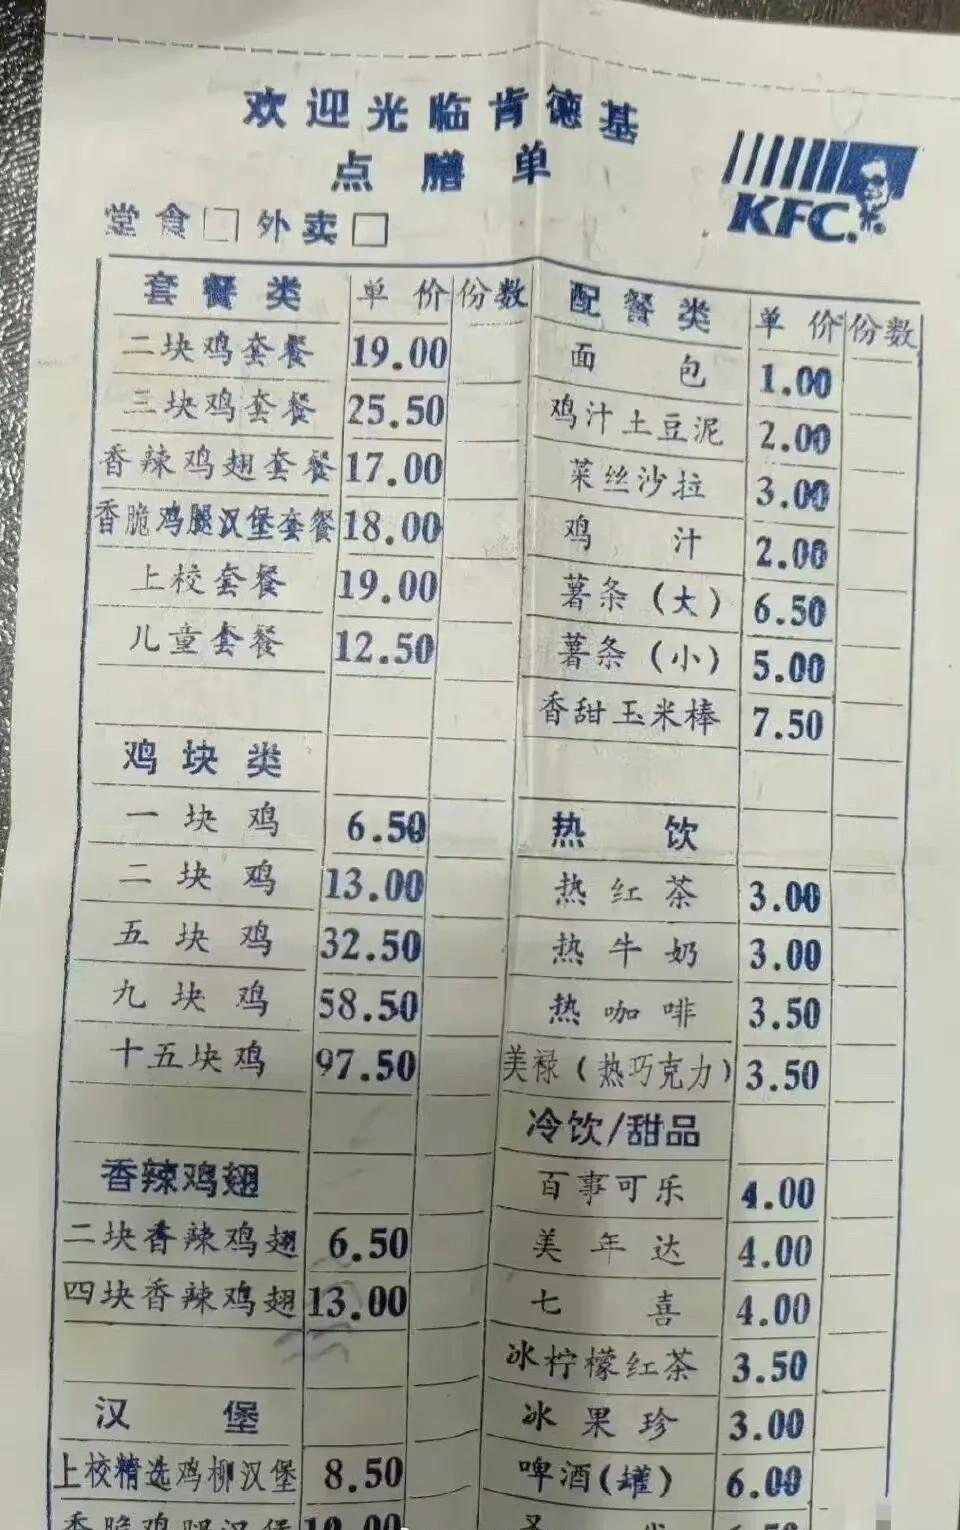 欢迎光临肯德基
点膳单
KFC.
堂食□ 外卖□
套餐类 单价 份数
二块鸡套餐 19.00
三块鸡套餐 25.50
香辣鸡翅套餐 17.00
香脆鸡腿汉堡套餐 18.00
上校套餐 19.00
儿童套餐 12.50
鸡块类
一块鸡 6.50
二块鸡 13.00
五块鸡 32.50
九块鸡 58.50
十五块鸡 97.50
香辣鸡翅
二块香辣鸡翅 6.50
四块香辣鸡翅 13.00
汉堡
上校精选鸡柳汉堡 8.50
香脆鸡腿汉堡 10.00
配餐类 单价 份数
面包 1.00
鸡汁土豆泥 2.00
菜丝沙拉 3.00
鸡汁 2.00
薯条(大) 6.50
薯条(小) 5.00
香甜玉米棒 7.50
热饮
热红茶 3.00
热牛奶 3.00
热咖啡 3.50
美禄(热巧克力) 3.50
冷饮/甜品
百事可乐 4.00
美年达 4.00
七喜 4.00
冰柠檬红茶 3.50
冰果珍 3.00
啤酒(罐) 6.00